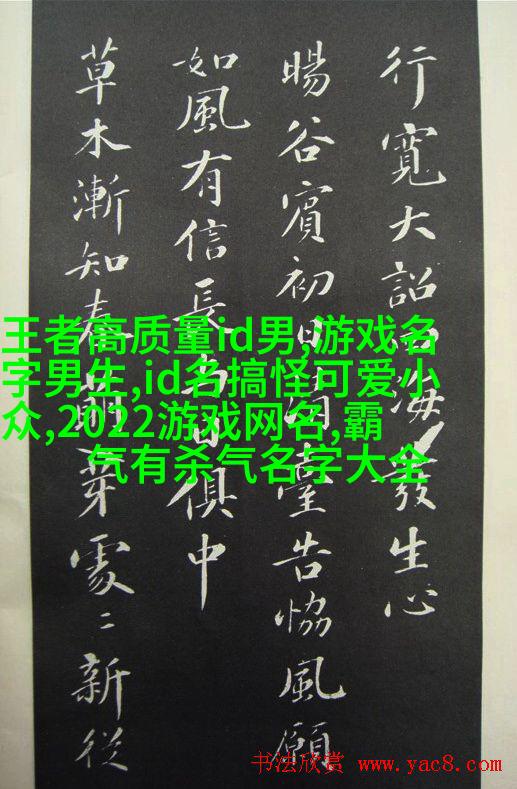 行寬大詔四海發生心
暘谷賓初日清臺告恊風願
如風有信長與日俱中
草木漸知春萌芽處〻新從
王者高质量id男,游戏名
字男生,id名搞怪可爱小
众,2022游戏网名,霸
气有杀气名字大全
书法欣赏 www.yac8.com